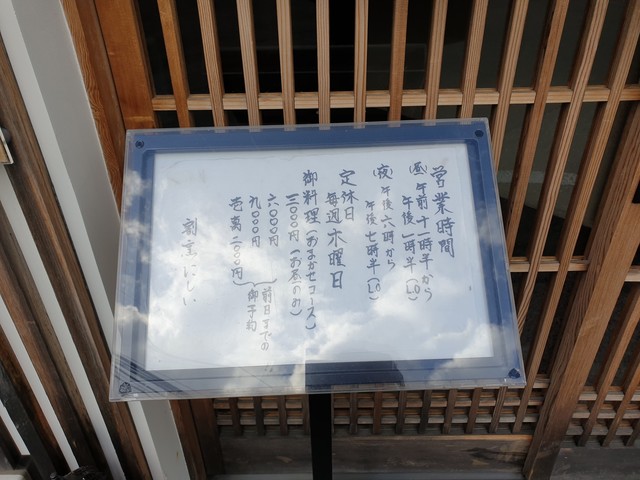 営業時間
(昼)午前十一時半から
午後一時半(LO)
(夜)午後六時から
午後七時半(LO)
定休日
毎週木曜日
御料理(おまかせコース)
三〇〇〇円(お昼のみ)
六〇〇〇円
九〇〇〇円
壱萬二〇〇〇円
前日までの
御予約
割烹 にしい